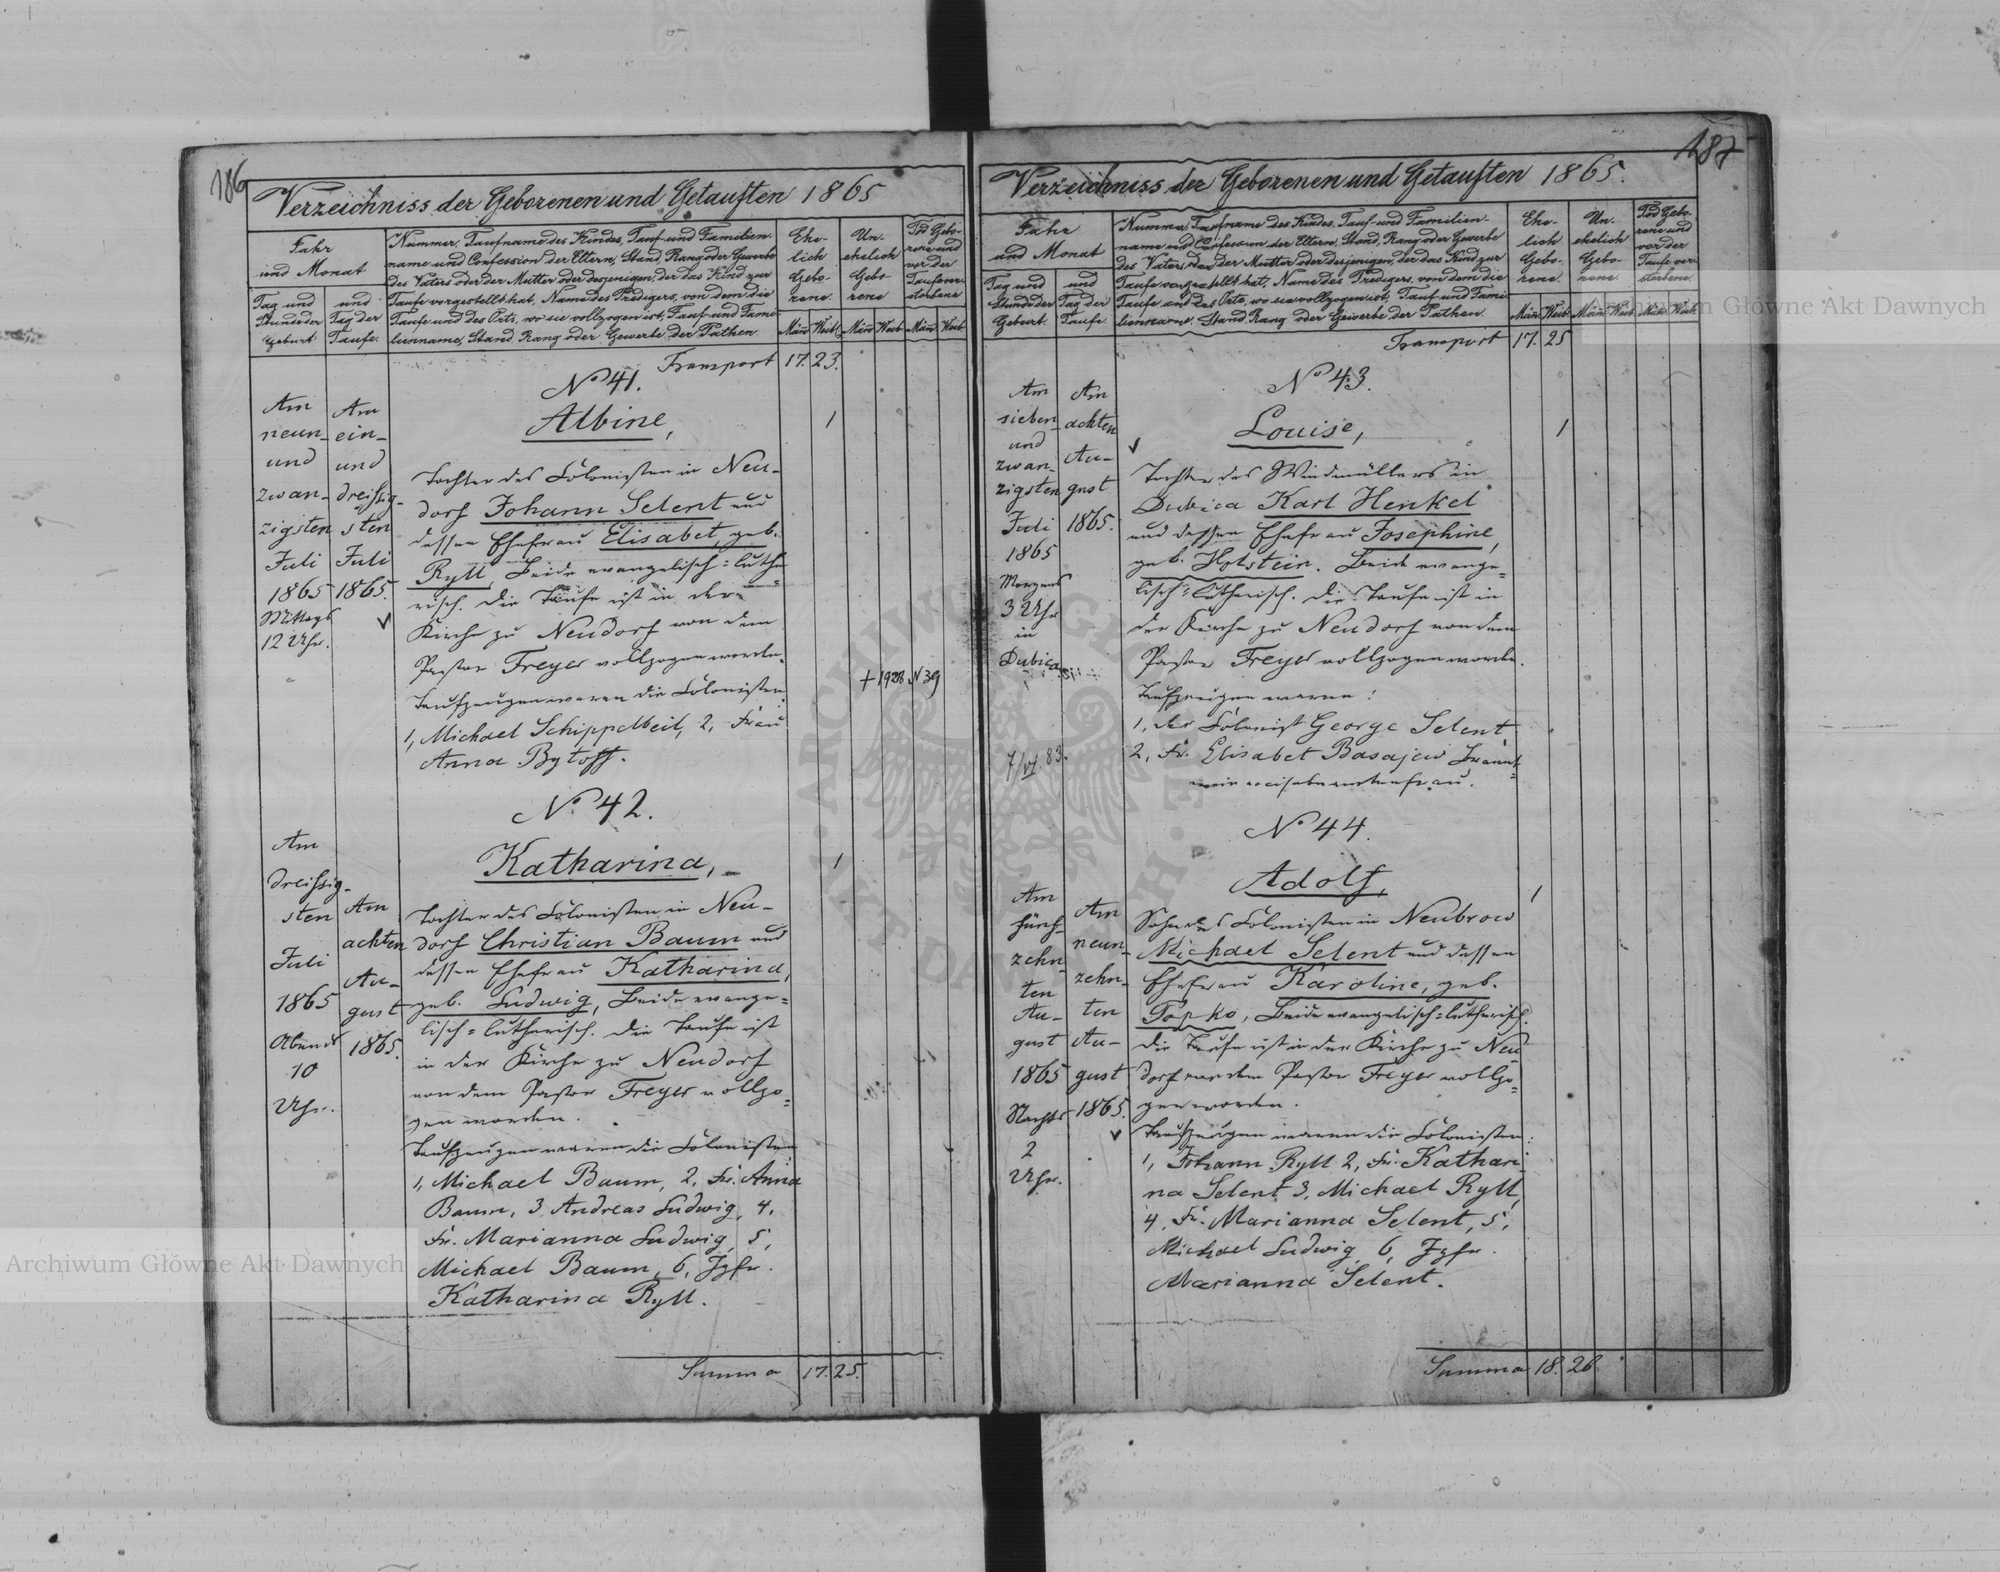 186
Verzeichniss der Geborenen und Getauften 1865
Jahr
und Monat
Tag und
Stunde der
Geburt.
und
Tag der
Taufe.
Nummer, Taufname des Kindes, Tauf- und Familien-
name und Confession der Eltern, Stand, Rang oder Gewerbe
des Vaters oder der Mutter oder desjenigen, der das Kind zur
Taufe vorgestellt hat, Name des Predigers, von dem die
Taufe und des Orts, wo sie vollzogen ist, Tauf- und Fami-
lienname, Stand, Rang oder Gewerbe der Pathen.
Ehe-
lich
Gebo-
rene
Un-
ehelich
Gebo-
rene
Tod Gebo-
rene und
vor der
Taufe ver-
storbene
Män Weib Män Weib Män Weib
Transport 17. 23.
No 41.
Albine,
1
Am
neun-
und
zwan-
zigsten
Juli
1865
Mittags
12 Uhr.
Am
ein-
und
dreissig-
sten
Juli
1865.
Tochter des Colonisten in Neu-
dorf Johann Selent und
dessen Ehefrau Elisabet, geb.
Ryll, Beide evangelisch-luthe-
risch. Die Taufe ist in der
Kirche zu Neudorf von dem
Pastor Freyer vollzogen worden.
Taufzeugen waren die Colonisten:
1, Michael Schippelbeit, 2, Frau
Anna Bytoff.
+ 1928 N 39
No 42.
Katharina,
1
Am
dreissig-
sten
Juli
1865
Abends
10
Uhr.
Am
achten
Au-
gust
1865.
Tochter des Colonisten in Neu-
dorf Christian Baum und
dessen Ehefrau Katharina,
geb. Ludwig, Beide evange-
lisch-lutherisch. Die Taufe ist
in der Kirche zu Neudorf
von dem Pastor Freyer vollzo-
gen worden.
Taufzeugen waren die Colonisten
1, Michael Baum, 2, Fr. Anna
Baum, 3, Andreas Ludwig, 4,
Fr. Marianna Ludwig, 5,
Michael Baum, 6, Jgfr.
Katharina Ryll.
Summa 17. 25.
187
Verzeichniss der Geborenen und Getauften 1865.
Jahr
und Monat
Tag und
Stunde der
Geburt.
und
Tag der
Taufe.
Nummer, Taufname des Kindes, Tauf- und Familien-
name und Confession der Eltern, Stand, Rang oder Gewerbe
des Vaters oder der Mutter oder desjenigen, der das Kind zur
Taufe vorgestellt hat, Name des Predigers, von dem die
Taufe und des Orts, wo sie vollzogen ist, Tauf- und Fami-
lienname, Stand, Rang oder Gewerbe der Pathen.
Ehe-
lich
Gebo-
rene
Un-
ehelich
Gebo-
rene
Tod Gebo-
rene und
vor der
Taufe ver-
storbene
Män Weib Män Weib Män Weib
Transport 17. 25
No 43.
Louise,
1
Am
sieben-
und
zwan-
zigsten
Juli
1865
Morgens
3 Uhr
in
Dubica
Am
achten
Au-
gust
1865.
Tochter des Windmüllers in
Dubica Karl Henkel
und dessen Ehefrau Josephine,
geb. Holstein. Beide evange-
lisch-lutherisch. Die Taufe ist in
der Kirche zu Neudorf von dem
Pastor Freyer vollzogen worden.
Taufzeugen waren:
1, der Colonist George Selent
2, Fr. Elisabet Basajew
7/VI 83.
No 44.
Adolf,
1
Am
fünf-
zehn-
ten
Au-
gust
1865
Nachts
2
Uhr.
Am
neun-
zehn-
ten
Au-
gust
1865.
Sohn des Colonisten in Neubrow
Michael Selent und dessen
Ehefrau Karoline, geb.
Popko, Beide evangelisch-lutherisch.
Die Taufe ist in der Kirche zu Neu-
dorf von dem Pastor Freyer vollzo-
gen worden.
Taufzeugen waren die Colonisten:
1, Johann Ryll 2, Fr. Kathari-
na Selent 3, Michael Ryll,
4, Fr. Marianna Selent, 5,
Michael Ludwig 6, Jgfr.
Marianna Selent.
Summa 18. 26
Archiwum Główne Akt Dawnych
Archiwum Główne Akt Dawnych